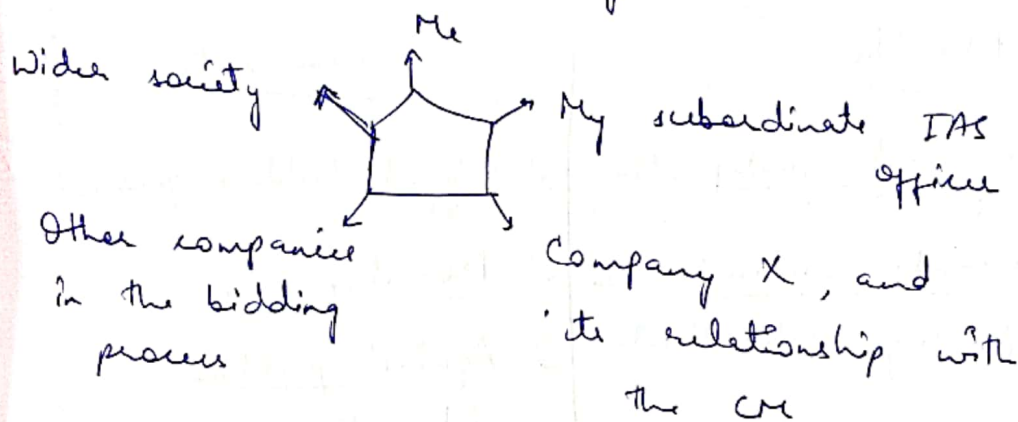 Me
Wider society
My subordinate IAS
officer
Other companies
in the bidding
process
Company X, and
its relationship with
the CM